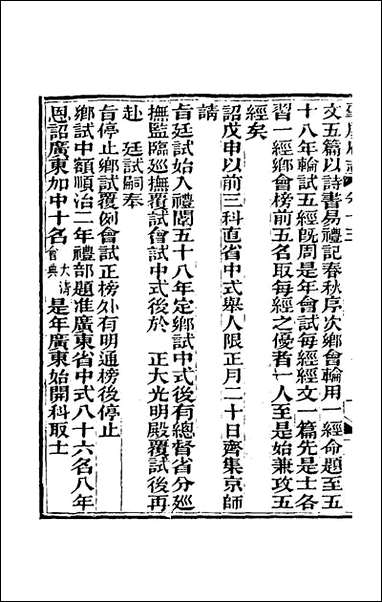 文五篇以詩書易禮記春秋序次鄉會輪用一經命題至五
十八年輪試五經旣周是年會試每經經文一篇先是士各
習一經鄉會榜前五名取每經之優者一人至是始兼攻五
經矣
詔戊申以前三科直省中式舉人限正月二十日齊集京師
請
旨廷試始入禮闈五十八年定鄉試中式後有總督省分廵
撫監臨廵撫覆試會試中式後於 正大光明殿覆試後再
赴 廷試嗣奉
旨停止鄉試覆例會試正榜外有明通榜後停止
鄉試中額順治二年禮部題准廣東省中式八十六名八年
恩詔廣東加中十名 大淸會典 是年廣東始開科取士